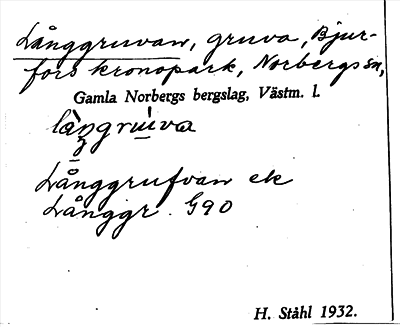 Långgruvan, gruva, Bjur-
fors kronopark, Norbergs sn,
Gamla Norbergs bergslag, Västm. l.
làŋgrúva
Långgrufvan ek
Långgr. G90
H. Ståhl 1932.